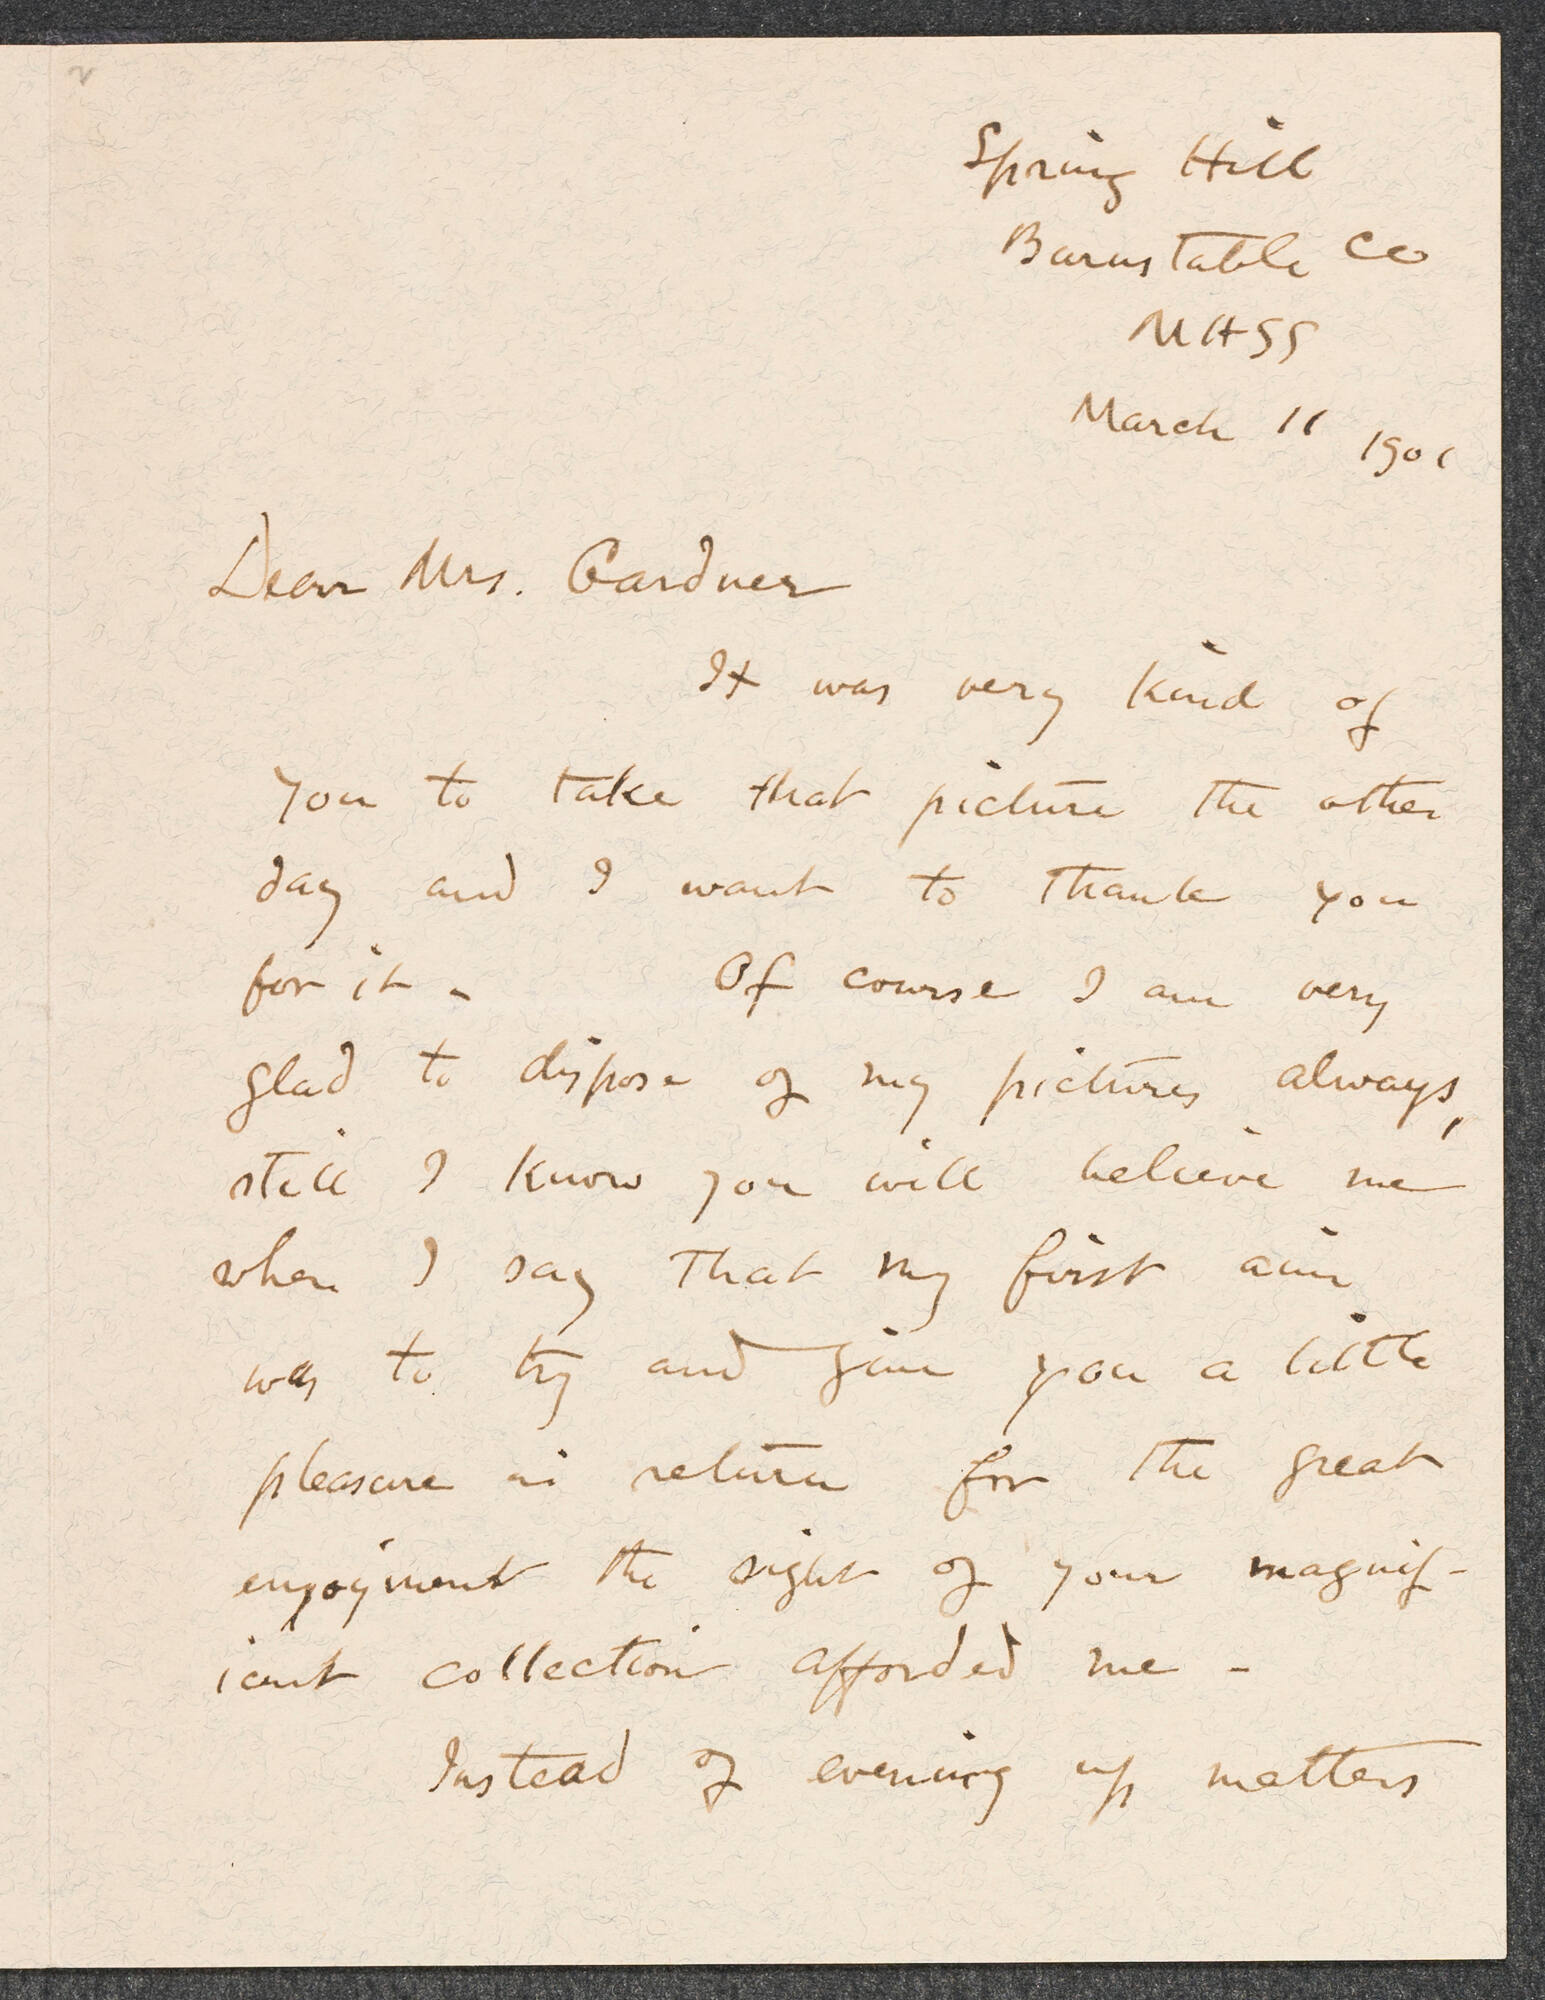 Spring Hill
Barnstable Co
MASS
March 11 1901
Dear Mrs. Gardner
It was very kind of
you to take that picture the other
day and I want to thank you
for it - Of course I am very
glad to dispose of my pictures always,
still I know you will believe me
when I say that my first aim
was to try and give you a little
pleasure in return for the great
enjoyment the sight of your magnif-
icent collection afforded me -
Instead of evening up matters